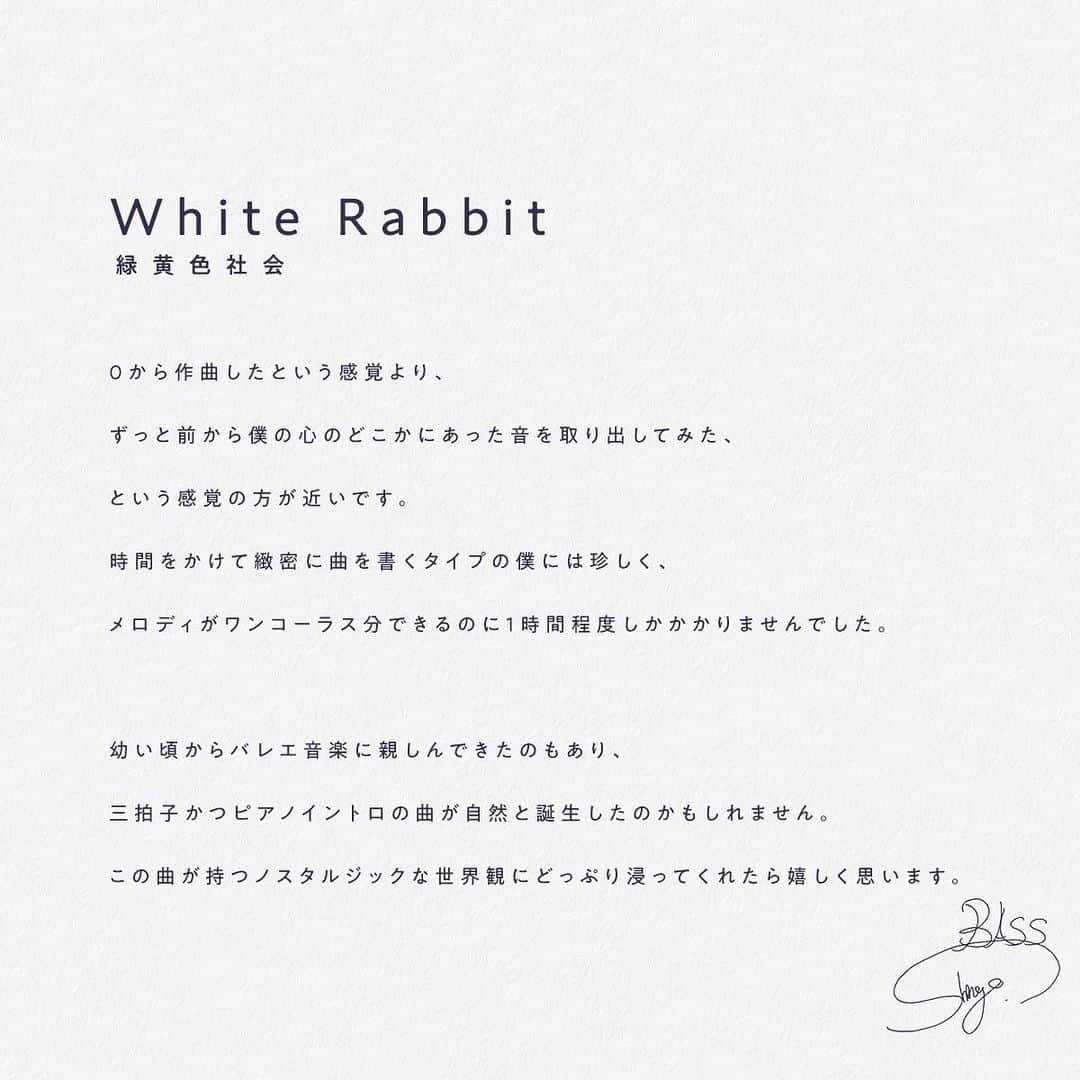 White Rabbit
緑黄色社会
0から作曲したという感覚より、
ずっと前から僕の心のどこかにあった音を取り出してみた、
という感覚の方が近いです。
時間をかけて緻密に曲を書くタイプの僕には珍しく、
メロディがワンコーラス分できるのに1時間程度しかかかりませんでした。
幼い頃からバレエ音楽に親しんできたのもあり、
三拍子かつピアノイントロの曲が自然と誕生したのかもしれません。
この曲が持つノスタルジックな世界観にどっぷり浸ってくれたら嬉しく思います。
BASS
Shingo.